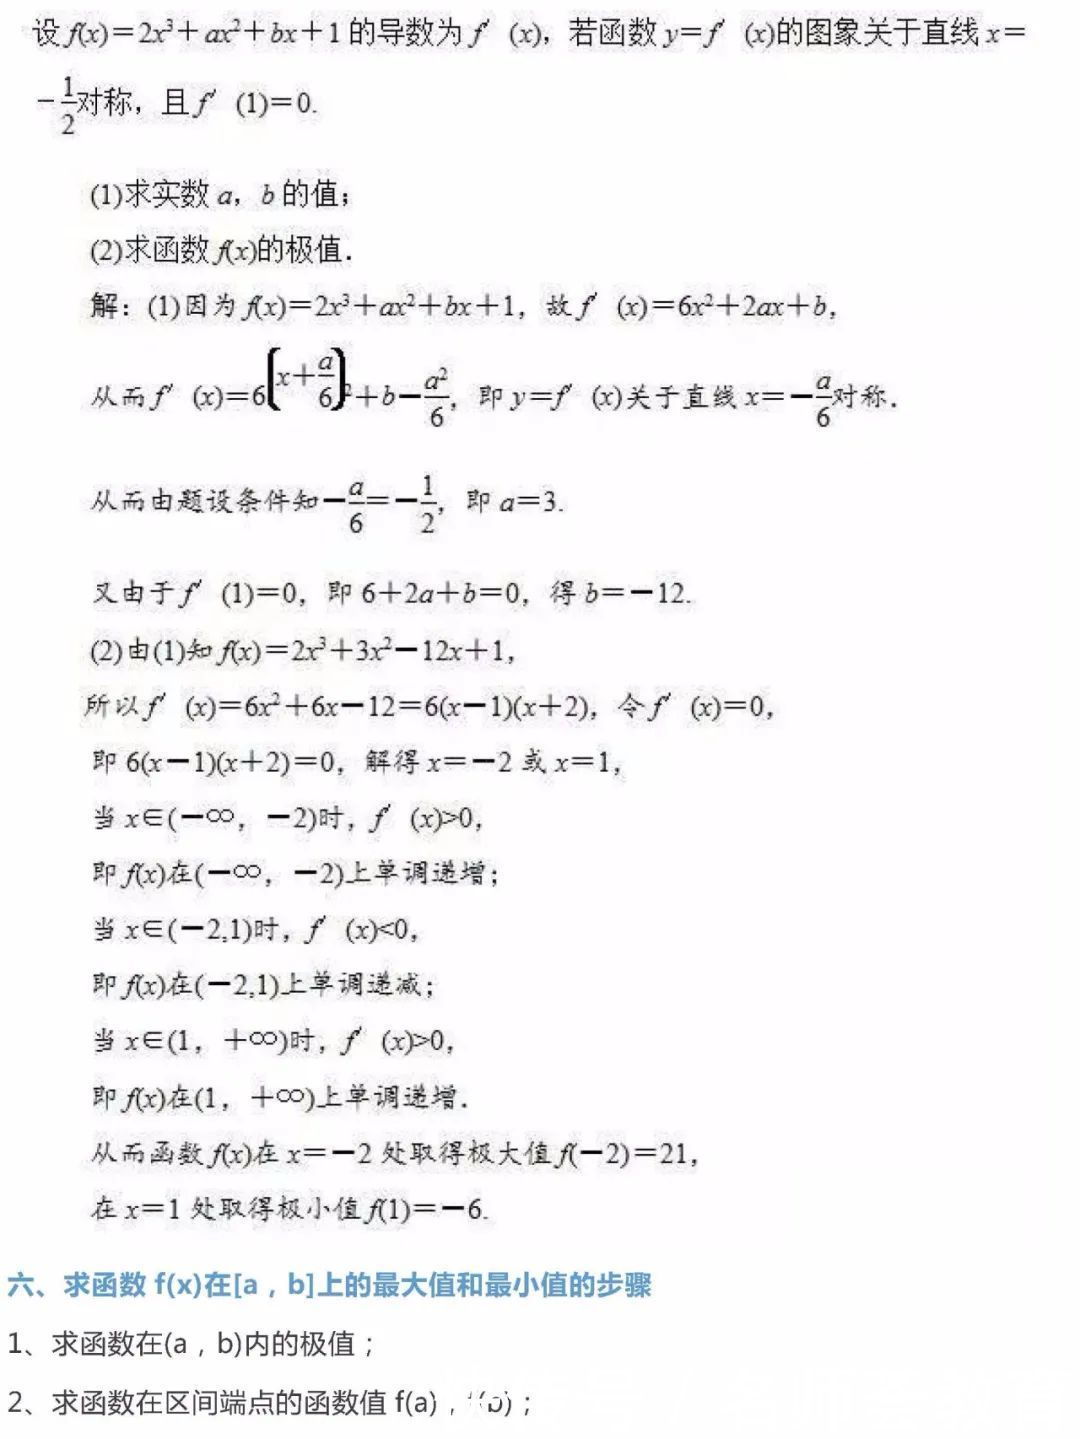 设 f(x)=2x³+ax²+bx+1 的导数为 f′(x)，若函数 y=f′(x)的图象关于直线 x=
-1/2对称，且 f′(1)=0.
(1)求实数 a，b 的值；
(2)求函数 f(x)的极值．
解：(1)因为 f(x)=2x³+ax²+bx+1，故 f′(x)=6x²+2ax+b，
从而 f′(x)=6(x+a/6)²+b-a²/6，即 y=f′(x)关于直线 x=-a/6对称．
从而由题设条件知-a/6=-1/2，即 a=3.
又由于 f′(1)=0，即 6+2a+b=0，得 b=-12.
(2)由(1)知 f(x)=2x³+3x²-12x+1，
所以 f′(x)=6x²+6x-12=6(x-1)(x+2)，令 f′(x)=0，
即 6(x-1)(x+2)=0，解得 x=-2 或 x=1，
当 x∈(-∞，-2)时，f′(x)>0，
即 f(x)在(-∞，-2)上单调递增；
当 x∈(-2,1)时，f′(x)<0，
即 f(x)在(-2,1)上单调递减；
当 x∈(1，+∞)时，f′(x)>0，
即 f(x)在(1，+∞)上单调递增．
从而函数 f(x)在 x=-2 处取得极大值 f(-2)=21，
在 x=1 处取得极小值 f(1)=-6.
六、求函数 f(x)在[a，b]上的最大值和最小值的步骤
1、求函数在(a，b)内的极值；
2、求函数在区间端点的函数值 f(a)，f(b)；